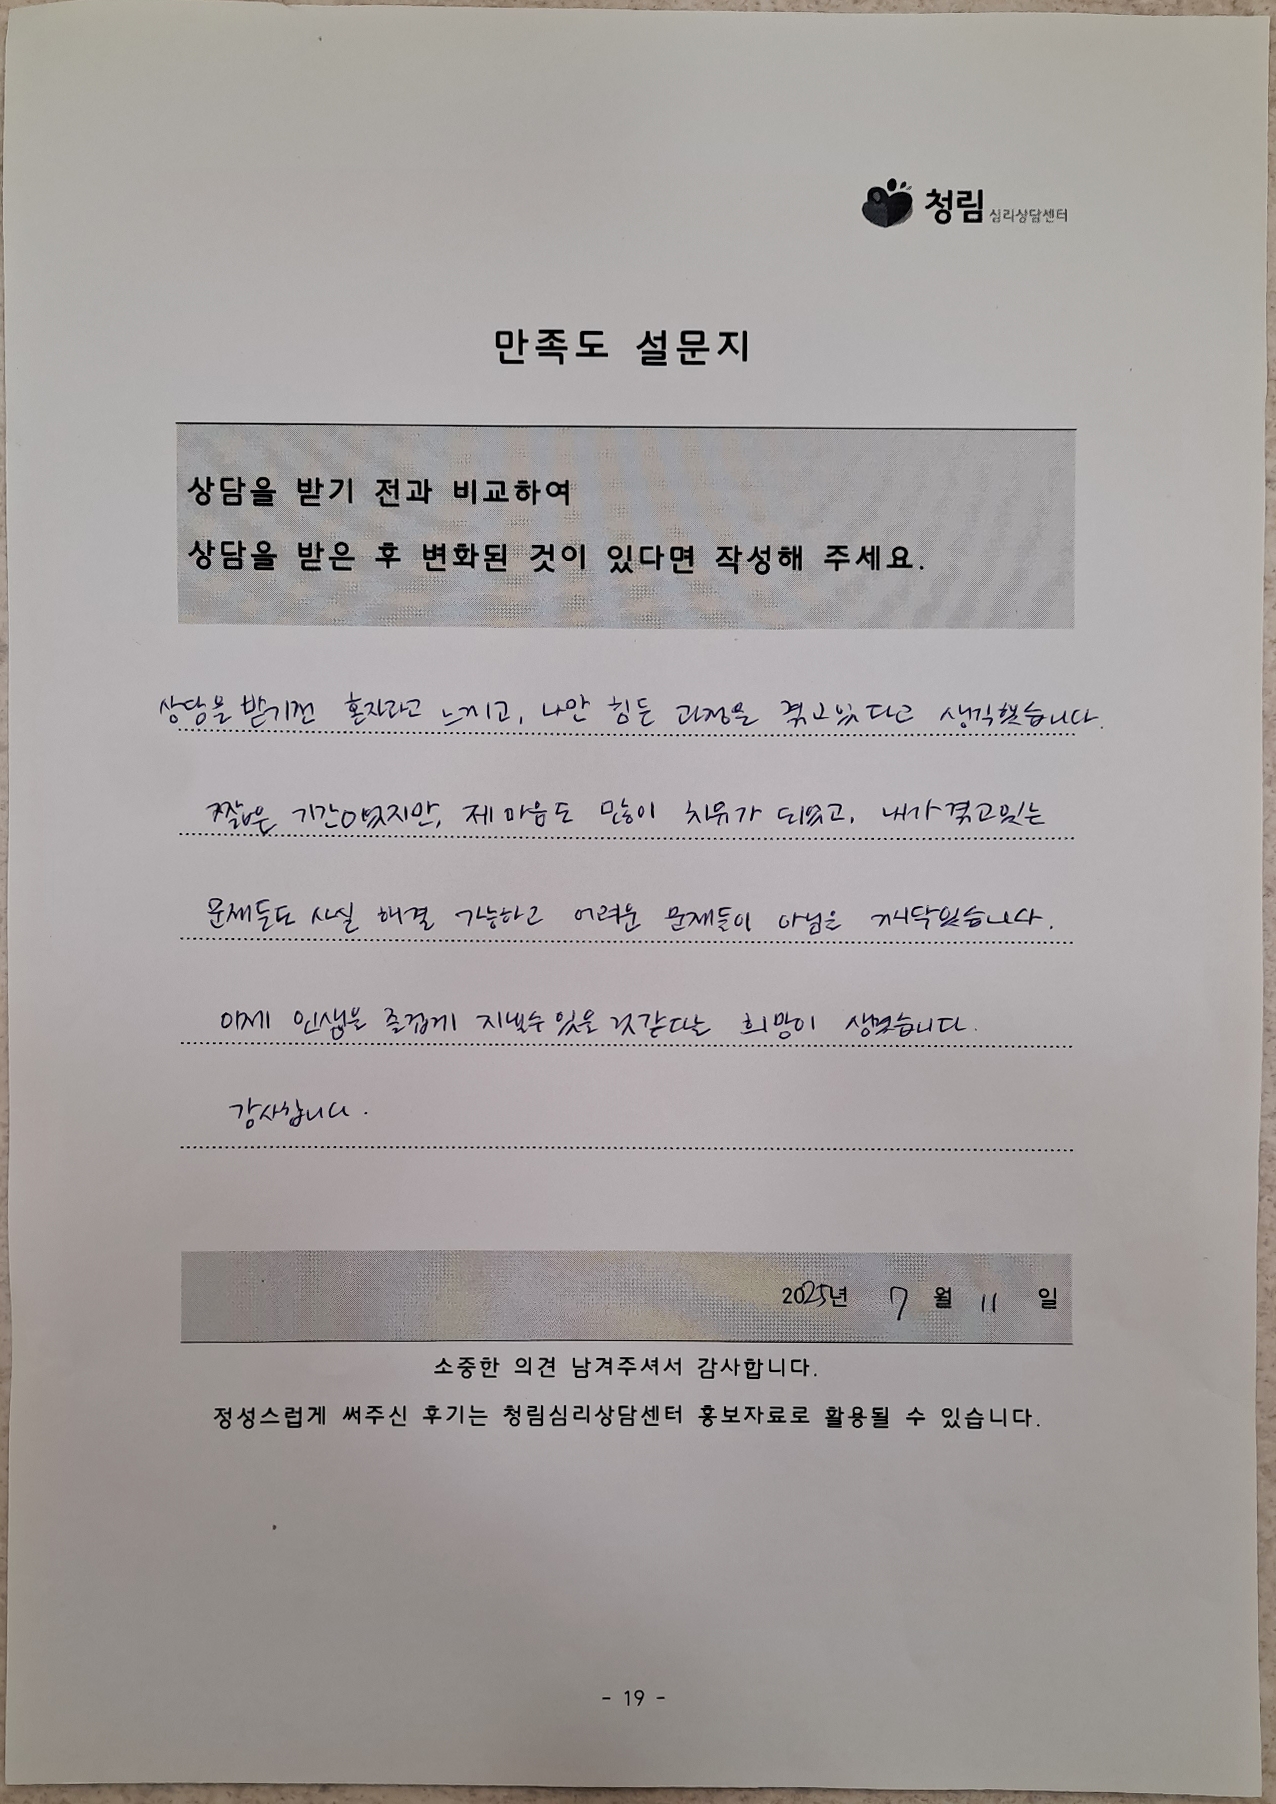 청림 심리상담센터
만족도 설문지
상담을 받기 전과 비교하여
상담을 받은 후 변화된 것이 있다면 작성해 주세요.
상담을 받기전 혼자라고 느끼고, 나만 힘든 과정을 겪고있다고 생각했습니다.
짧은 기간이였지만, 제 마음도 많이 치유가 되었고, 내가 겪고있는
문제들도 사실 해결 가능하고 어려운 문제들이 아님은 깨닥었습니다.
이제 인생을 즐겁게 지낼수 있을 것같다는 희망이 생겼습니다.
감사합니다.
2025년 7 월 11 일
소중한 의견 남겨주셔서 감사합니다.
정성스럽게 써주신 후기는 청림심리상담센터 홍보자료로 활용될 수 있습니다.
- 19 -